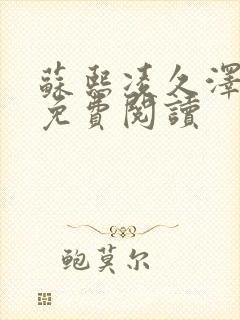 蘇熙凌久澤
免費閱讀
鲍莫尔